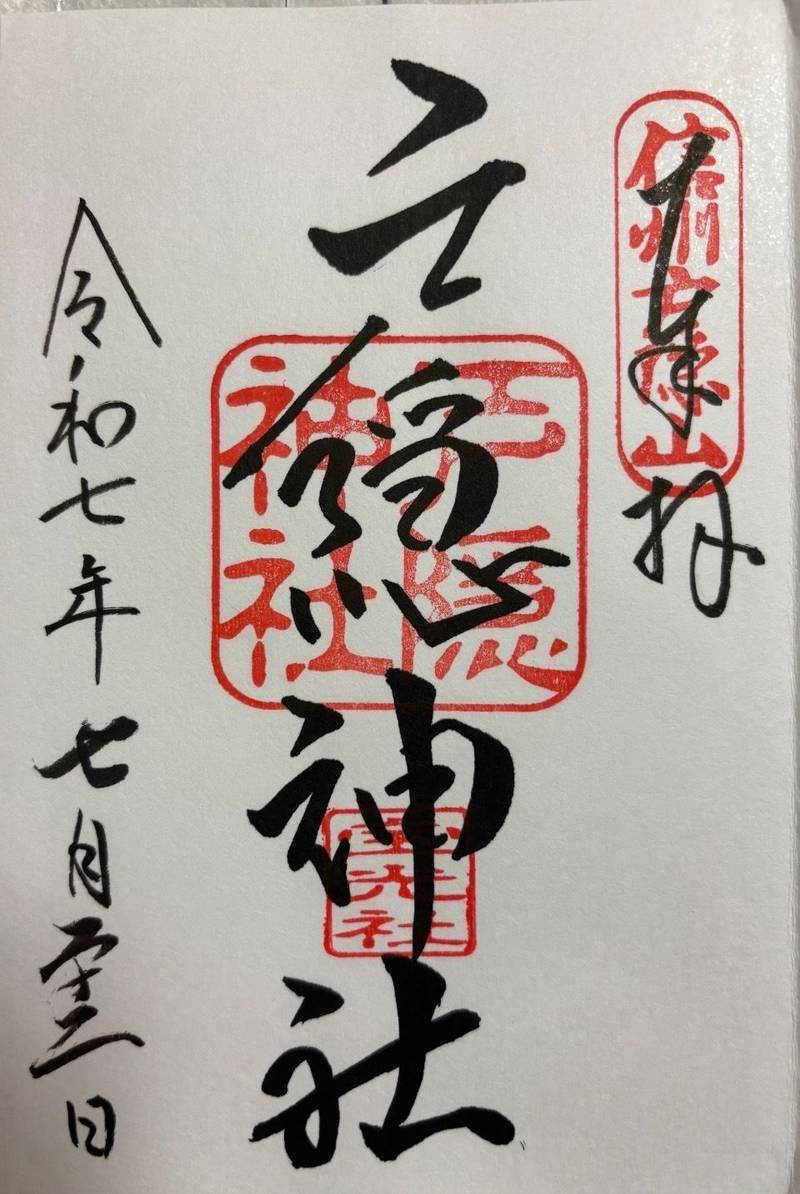 奉拝
信州戸隠山
戸隠神社
戸隠
神社
宝光社
令和七年七月二十二日